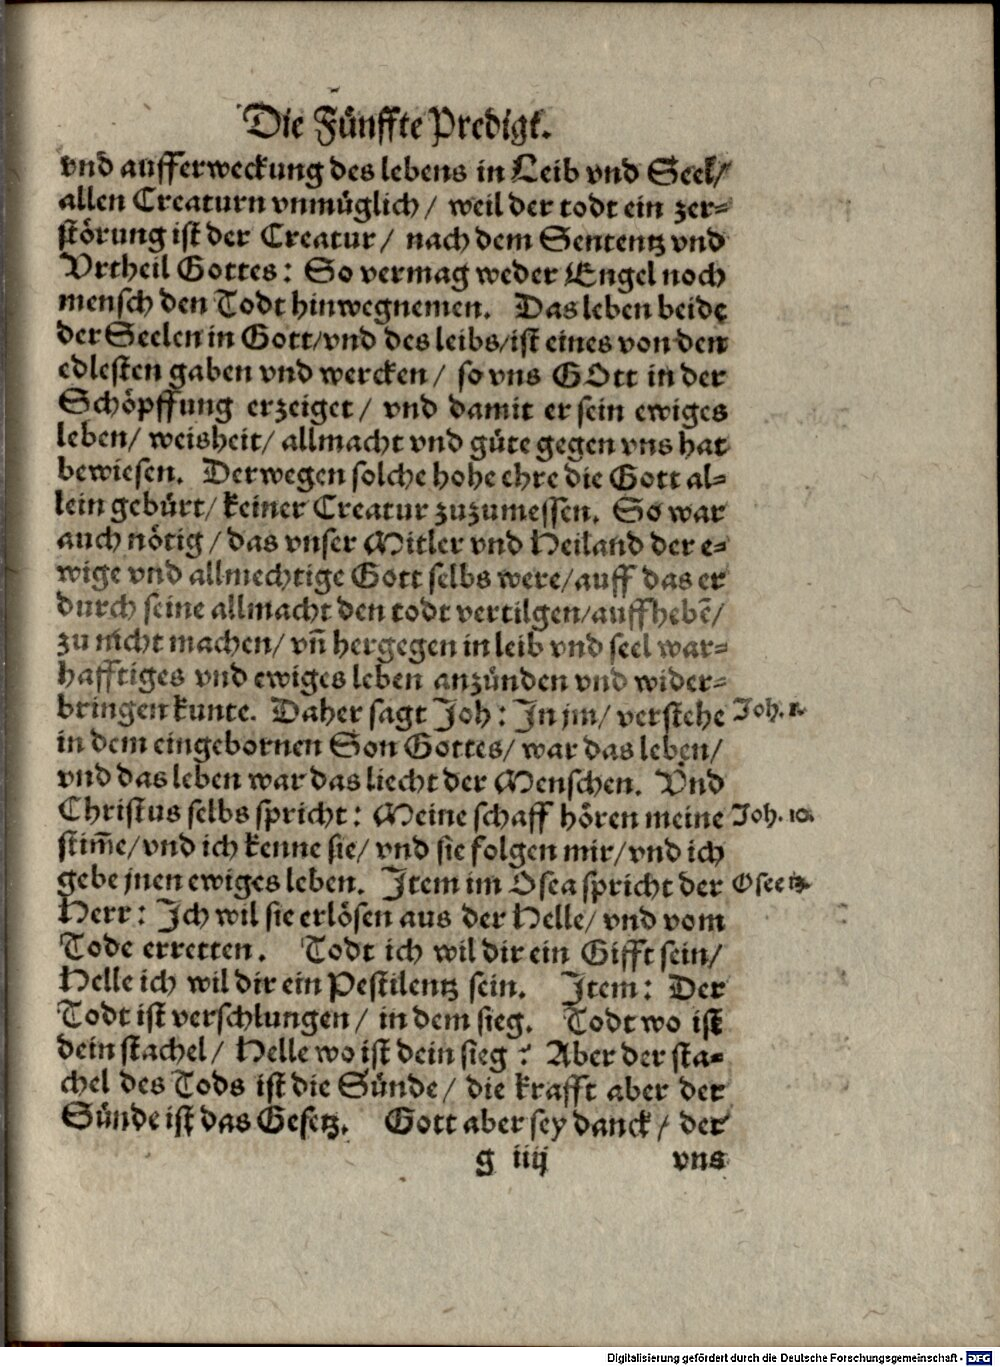 Die Fünffte Predigt.
vnd aufferweckung des lebens in Leib vnd Seel/
allen Creaturn vnmüglich / weil der todt ein zer-
störung ist der Creatur / nach dem Sententz vnd
Vrtheil Gottes: So vermag weder Engel noch
mensch den Todt hinwegnemen. Das leben beide
der Seelen in Gott/vnd des leibs/ist eines von den
edlesten gaben vnd wercken / so vns GOtt in der
Schöpffung erzeiget / vnd damit er sein ewiges
leben/ weisheit/ allmacht vnd güte gegen vns hat
bewiesen. Derwegen solche hohe ehre die Gott al-
lein gebürt/ keiner Creatur zuzumessen. So war
auch nötig / das vnser Mitler vnd Heiland der e-
wige vnd allmechtige Gott selbs were/auff das er
durch seine allmacht den todt vertilgen/auffhebẽ/
zu nicht machen/ vñ hergegen in leib vnd seel war-
hafftiges vnd ewiges leben anzünden vnd wider-
bringen kunte. Daher sagt Joh: In jm/ verstehe Joh. 1.
in dem eingebornen Son Gottes/ war das leben/
vnd das leben war das liecht der Menschen. Vnd
Christus selbs spricht: Meine schaff hören meine Joh. 10.
stim̃e/vnd ich kenne sie/ vnd sie folgen mir/vnd ich
gebe jnen ewiges leben. Item im Osea spricht der Osee 13.
Herr: Ich wil sie erlösen aus der Helle/ vnd vom
Tode erretten. Todt ich wil dir ein Gifft sein/
Helle ich wil dir ein Pestilentz sein. Item: Der
Todt ist verschlungen / in dem sieg. Todt wo ist
dein stachel / Helle wo ist dein sieg? Aber der sta-
chel des Tods ist die Sünde / die krafft aber der
Sünde ist das Gesetz. Gott aber sey danck / der
g iiij vns
Digitalisierung gefördert durch die Deutsche Forschungsgemeinschaft - DFG